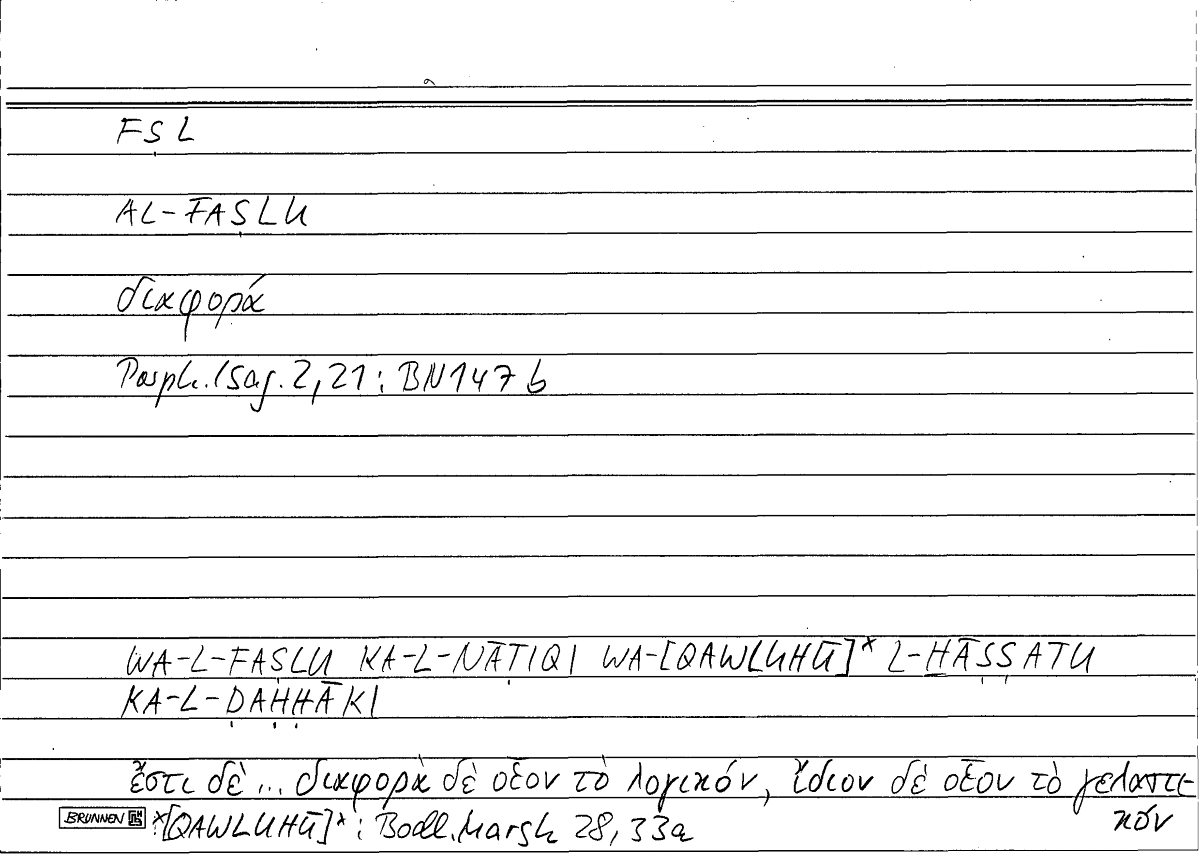 FṢL
AL-FAṢLU
διαφορά
Porph. Isag. 2,21: BN 147 b
WA-L-FAṢLU KA-L-NĀṬIQI WA-[QAWLUHŪ]* L-H̱ĀṢṢATU
KA-L-ḌAḤḤĀKI
ἔστι δὲ ... διαφορὰ δὲ οἷον τὸ λογικόν, ἴδιον δὲ οἷον τὸ γελαστι-
κόν
BRUNNEN *[QAWLUHŪ]*: Bodl. Marsh 28, 33a